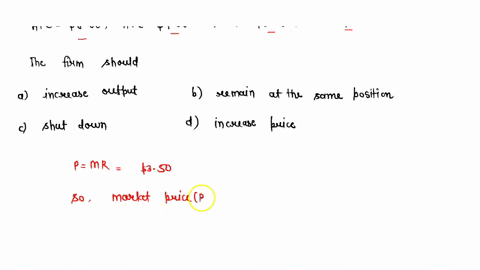 The firm should
a) increase output b) remain at the same position
c) shut down d) increase price
P = MR = $3.50
so, market price (P